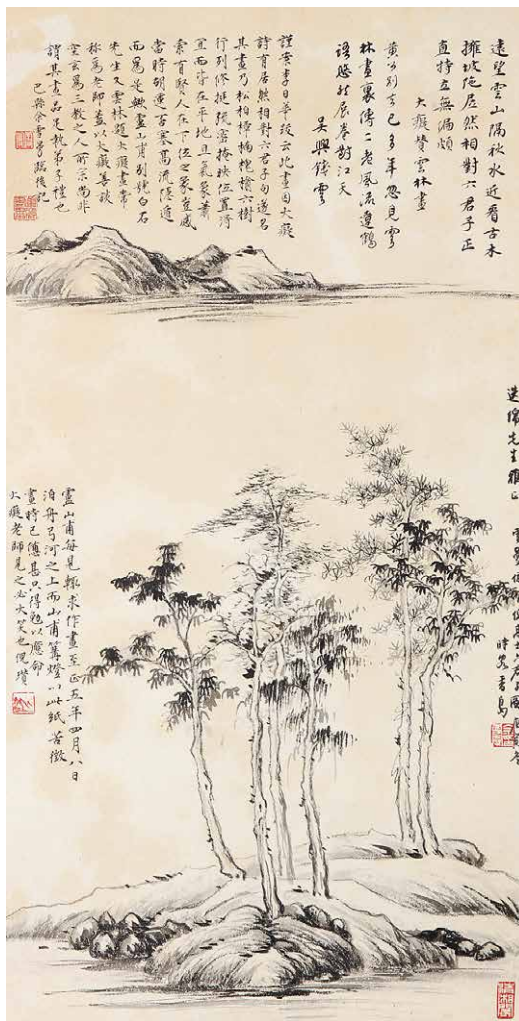 遠望雲山隔秋水近看古木
擁坡陁居然相對六君子正
直特立無偏頗
大癡贊雲林畫
黃公別去已多年忽見雲
林畫裏傳二老風流遼鶴
語悠然展卷對江天
吳興錢雲
謹案李日華跋云此畫因大癡
詩有居然相對六君子句遂名
其畫乃松柏樟楠槐榆六樹
行列修挺疏密掩映位置得
宜而皆在平地且氣象蕭
索有賢人在下位之象豈感
當時胡運否塞高流隱遁
而寫是歟盧山甫別號白石
先生又雲林題大癡畫常
稱為老師蓋以大癡善談
空玄為三教之人所宗尚非
謂其畫品足執弟子禮也
余雪曼臨後記
先生雅正
盧山甫每見輒求作畫至正五年四月八日
泊舟弓河之上而山甫篝燈以此紙苦徵
畫時已憊甚只得勉以應命
大癡老師見之必大笑也倪瓚